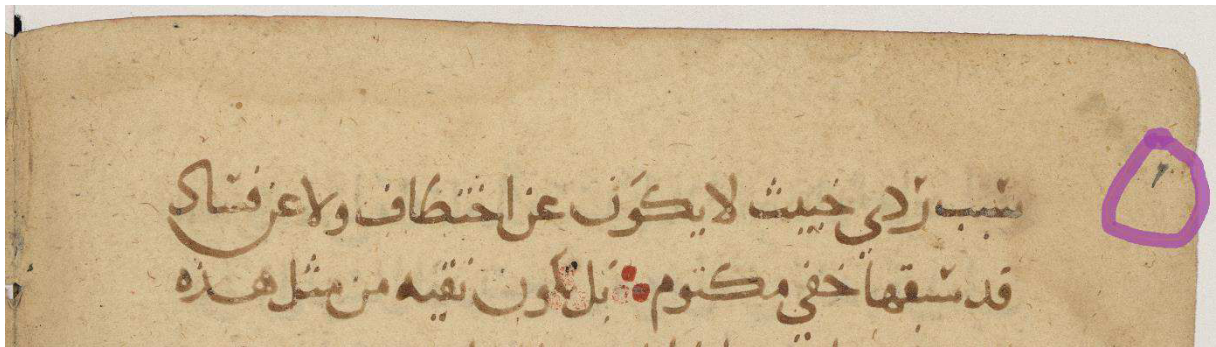 سبب ردي خبيث لا يكون عن اختطاف ولا عن فساد
قد سبقها خفي مكتوم بل تكون نقيه من مثل هذه